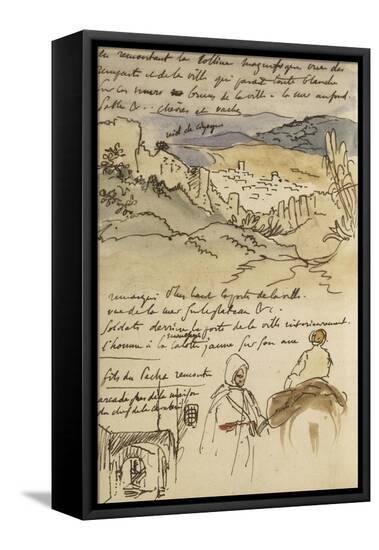 en remontant la colline magnifique vue des
remparts et de la ville qui parait toute blanche
sur les murs bruns de la ville - la mer au fond
Sable &c. chèvres et vache
nid de cigogne
remarqué d'en haut la porte de la ville.
vue de la mer sur le plateau &c.
Soldats derrière la porte de la ville intérieurement.
l'homme à la calotte jaune sur son ane
fils du Pacha remonté
arcade près de la maison
du chef de la